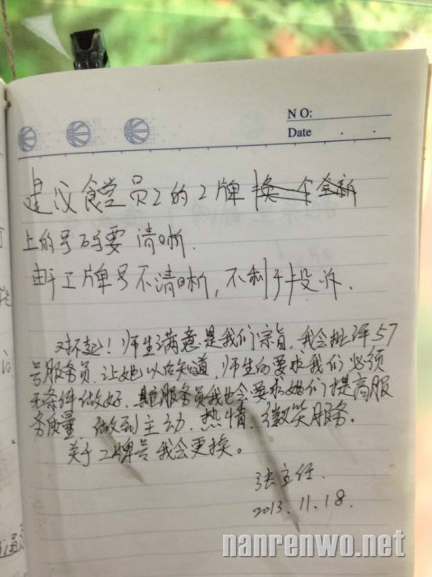 NO:
Date
建议食堂员工的工牌换个全新
上的号码要清晰.
由于工牌号不清晰,不利于投诉.
对不起!师生满意是我们宗旨,我会批评57
号服务员,让她以后知道,师生的要求我们必须
无条件做好,服务员我也会要求她们提高服
务质量,做到主动、热情、微笑服务。
关于工牌号我会更换。
张主任.
2013.11.18.
nanrenwo.net